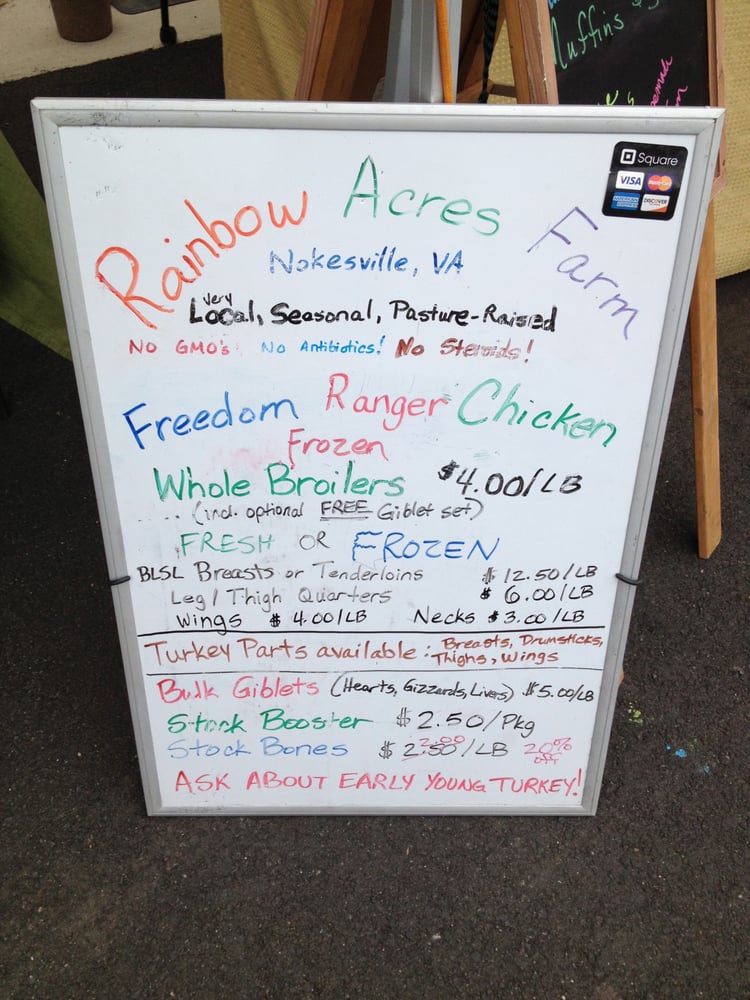 Muffins
Square
VISA
MasterCard
AMERICAN EXPRESS
DISCOVER
Rainbow Acres Farm
Nokesville, VA
very
Local, Seasonal, Pasture-Raised
No GMO's No Antibiotics! No Steroids!
Freedom Ranger Chicken
Frozen
Whole Broilers $4.00/LB
(incl. optional FREE Giblet set)
FRESH OR FROZEN
BLSL Breasts or Tenderloins $12.50/LB
Leg/Thigh Quarters $6.00/LB
Wings $4.00/LB Necks $3.00/LB
Turkey Parts available: Breasts, Drumsticks,
Thighs, Wings
Bulk Giblets (Hearts, Gizzards, Livers) $5.00/LB
Stock Booster $2.50/Pkg
2.00
Stock Bones $2.50/LB 20% off
ASK ABOUT EARLY YOUNG TURKEY!